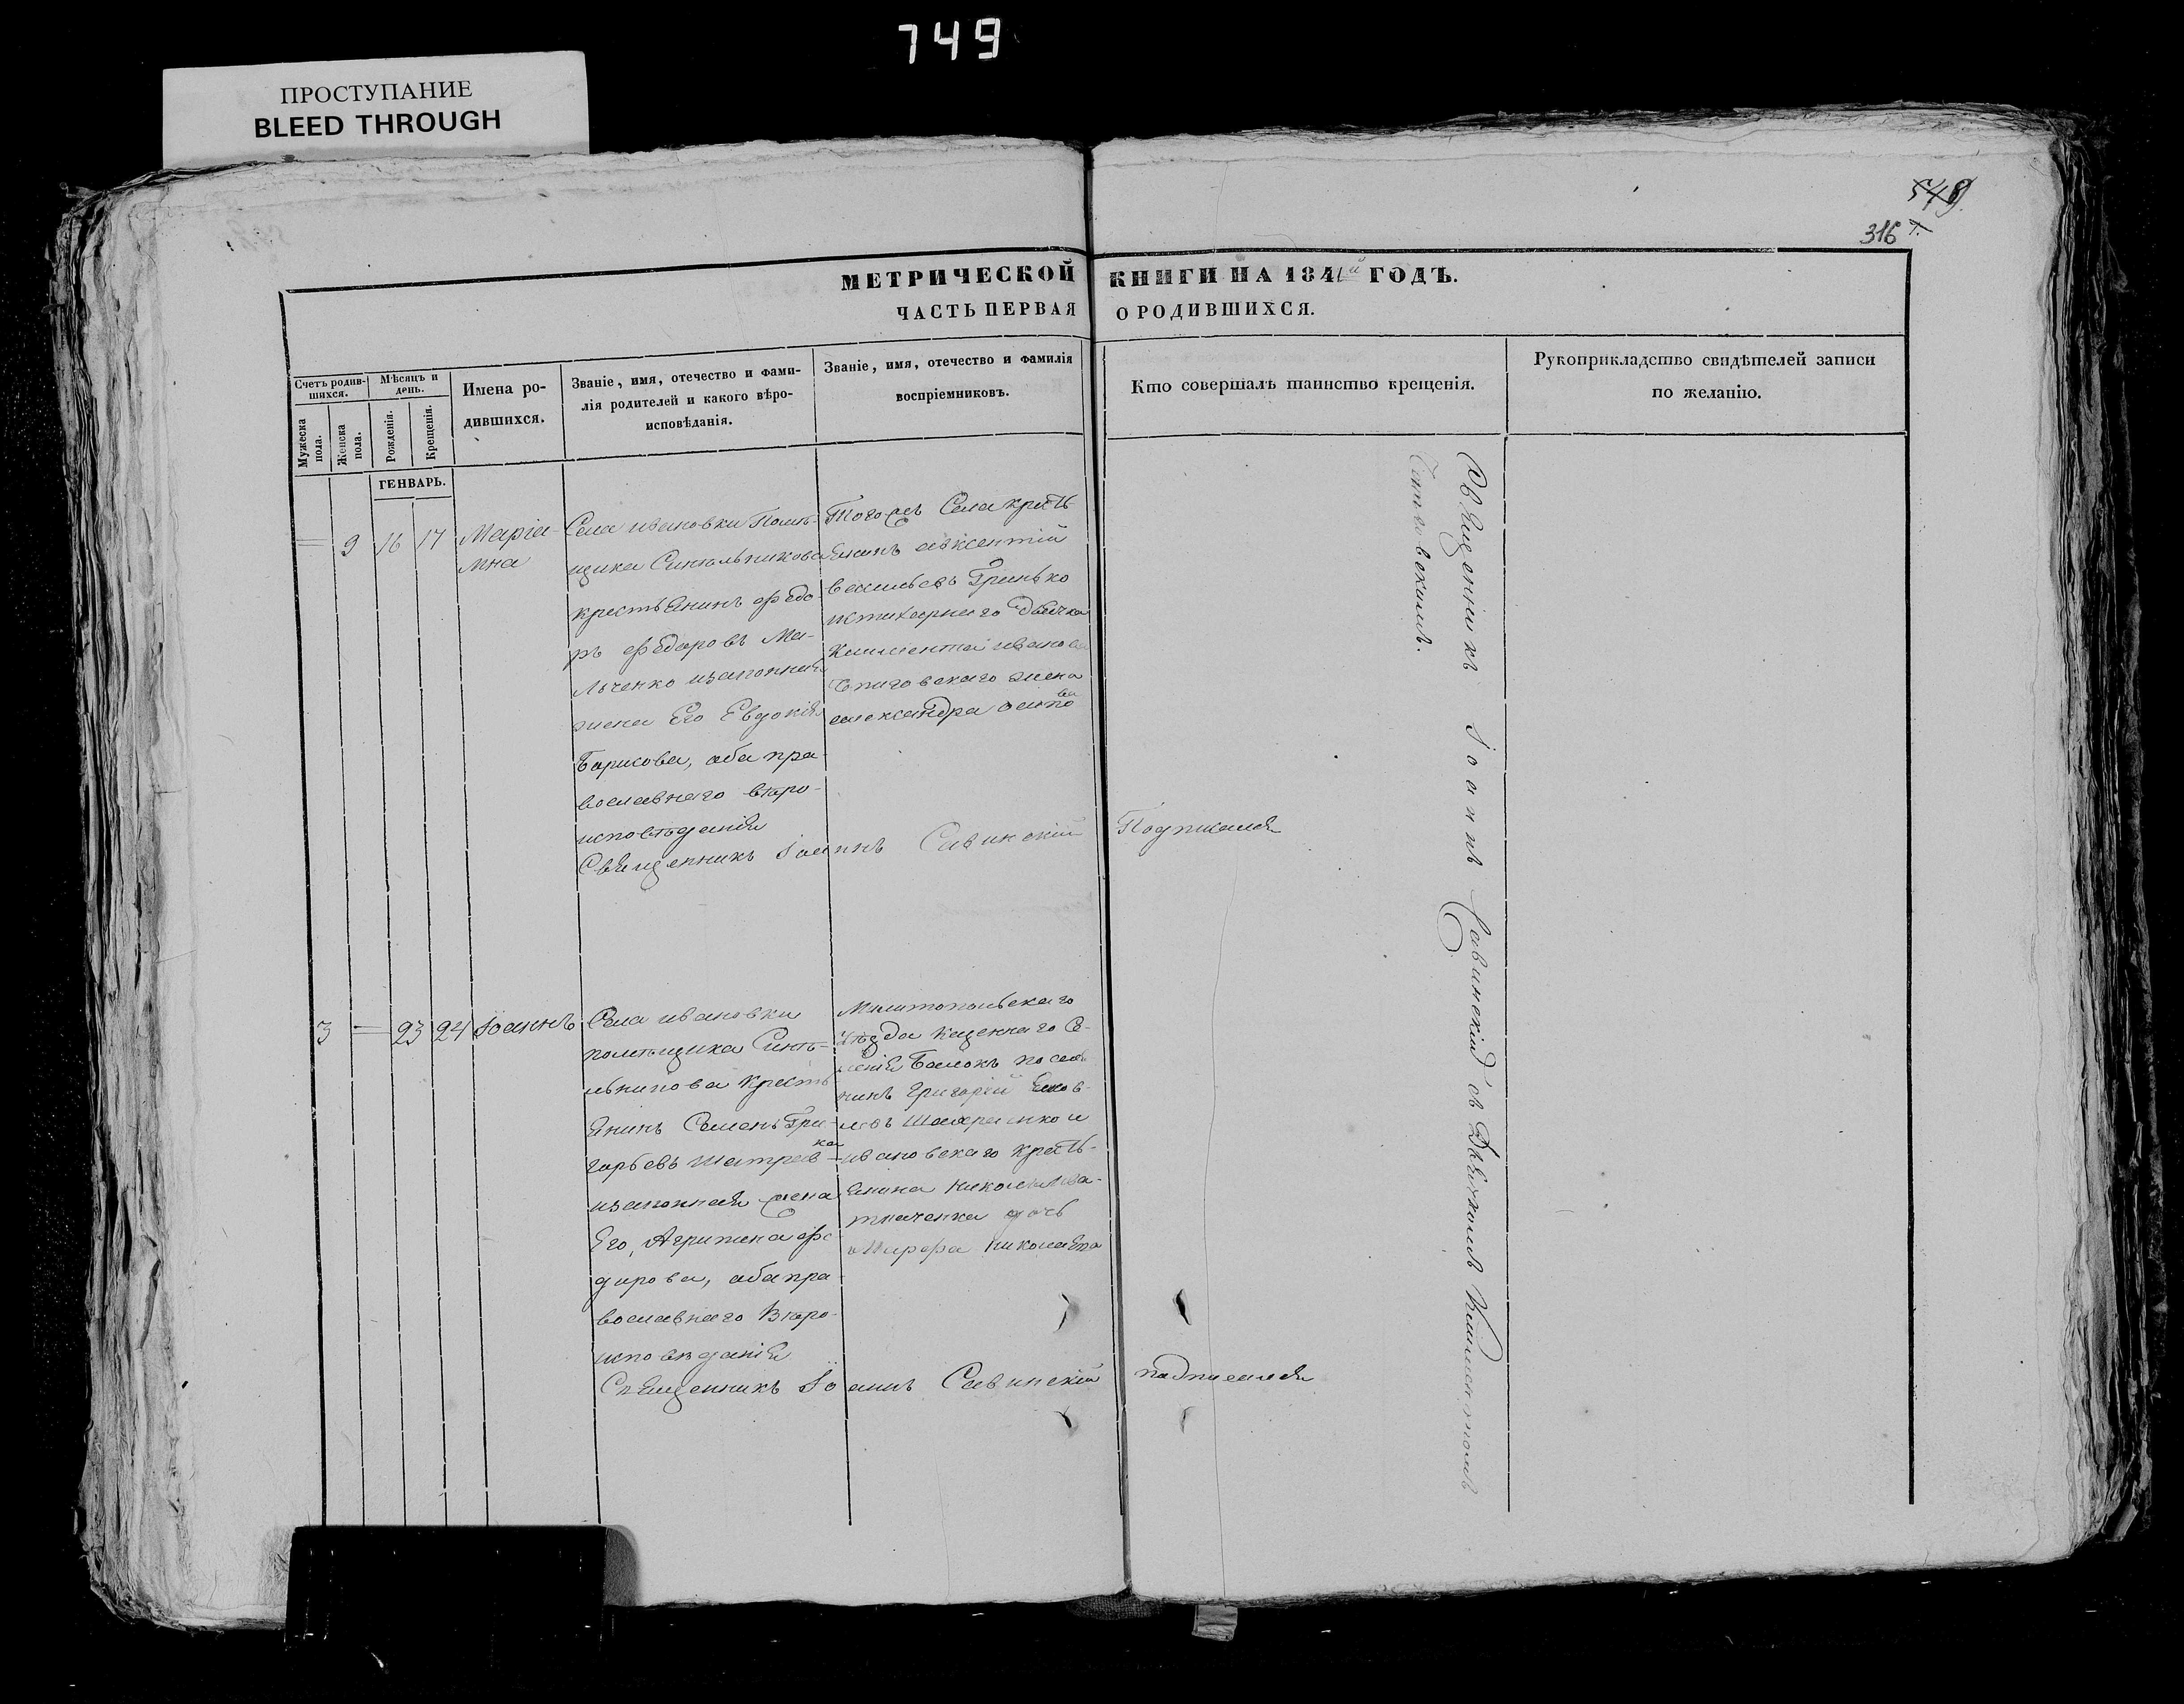 749
ПРОСТУПАНИЕ
BLEED THROUGH
549
316
МЕТРИЧЕСКОЙ КНИГИ НА 1841й ГОДЪ.
ЧАСТЬ ПЕРВАЯ О РОДИВШИХСЯ.
Счетъ родив-
шихся.
Мужеска
пола.
Женска
пола.
Мѣсяцъ и
день.
Рожденія.
Крещенія.
Имена ро-
дившихся.
Званіе, имя, отечество и фами-
лія родителей и какого вѣро-
исповѣданія.
Званіе, имя, отечество и фамилія
воспріемниковъ.
Кто совершалъ таинство крещенія.
Рукоприкладство свидѣтелей записи
по желанію.
ГЕНВАРЬ.
= 9 16 17
Маріа-
мна
Села ивановки Помѣ-
щика Синельникова
крестьянинъ Федо
ръ Федоровъ Ма-
льченко изаконная
жена Его Евдокія
Борисова, оба пра-
вославнаго вѣро-
исповѣданія
Тогожъ Села кресть
янинъ авксентій
васильевъ Гринько
истихарнаго дьячка
Климента иванова
жена
александра осипо
ва
Священникъ Іоаннъ Савинскій Подписался
3 — 23 24 Іоаннъ
Села ивановки
помѣщика Сине-
льникова кресть
янинъ Семенъ Гри-
горьевъ
изаконная жена
Его, Агрипена Фе
дорова, оба пра-
вославнаго вѣро-
исповѣданія
Милитопольскаго
уѣзда казеннаго Се-
ленія Балокъ поселя
нинъ Григорій
ивановскаго кресть-
янина николая
дочь
Марфа николаева
Священникъ Іоаннъ Савинскій подписался
Священникъ Іоаннъ Савинскій съ Дьячкомъ Климентомъ